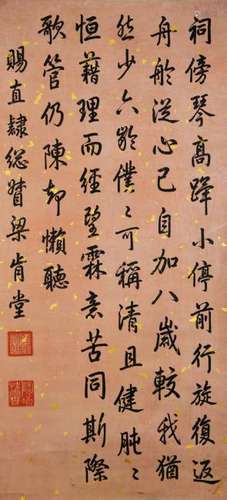 祠傍琴高蹕小停前行旋復返
舟舲從心已自加八歲較我猶
然少六齡僕僕可稱清且健肫肫
恒藉理而經望霖意苦同斯際
歌管仍陳却懶聽
賜直隸總督梁肯堂